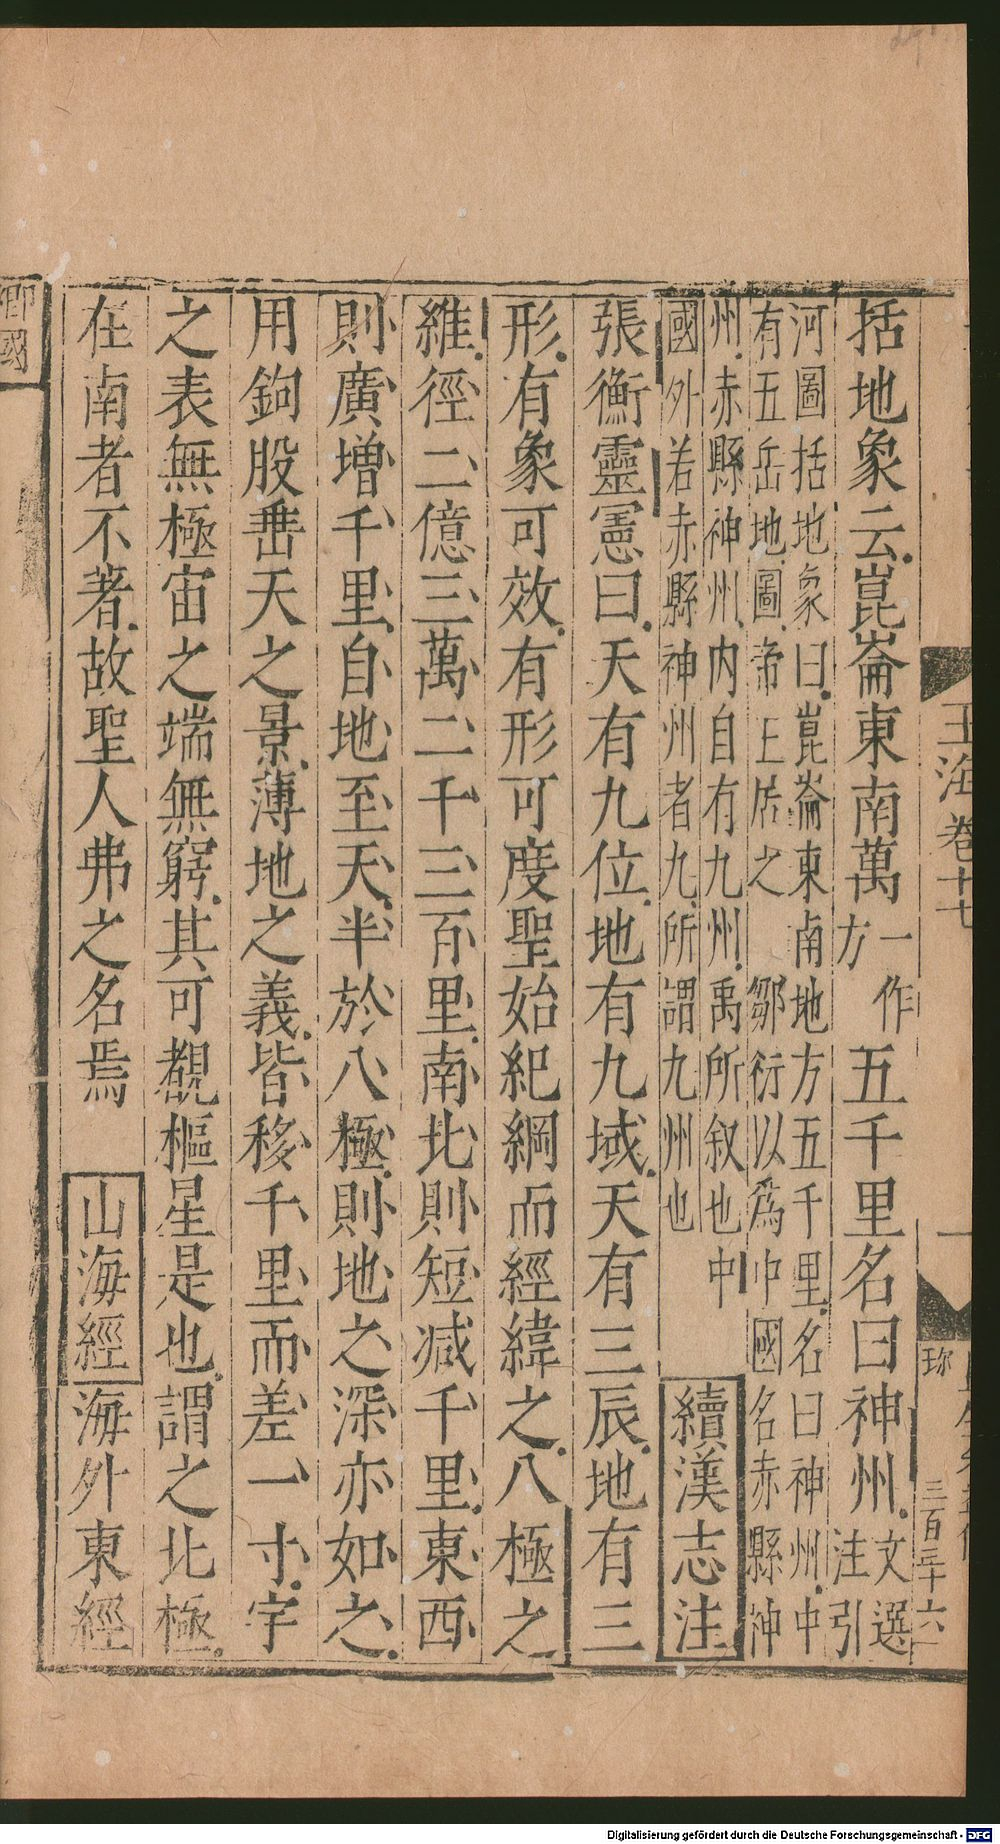 括地象云崑崙東南萬一作方五千里名曰神州文選注引
河圖括地象曰崑崙東南地方五千里名曰神州中
有五岳地圖帝王居之 鄒衍以為中國名赤縣神
州赤縣神州內自有九州禹所叙也中
國外若赤縣神州者九所謂九州也
續漢志注
張衡靈憲曰天有九位地有九域天有三辰地有三
形有象可效有形可度聖始紀綱而經緯之八極之
維徑二億三萬二千三百里南北則短减千里東西
則廣增千里自地至天半於八極則地之深亦如之
用鉤股垂天之景薄地之義皆移千里而差一寸宇
之表無極宙之端無窮其可覩樞星是也謂之北極
在南者不著故聖人弗之名焉 山海經海外東經
玉海卷十七
一
三百三十六
國
Digitalisierung gefördert durch die Deutsche Forschungsgemeinschaft - DFG